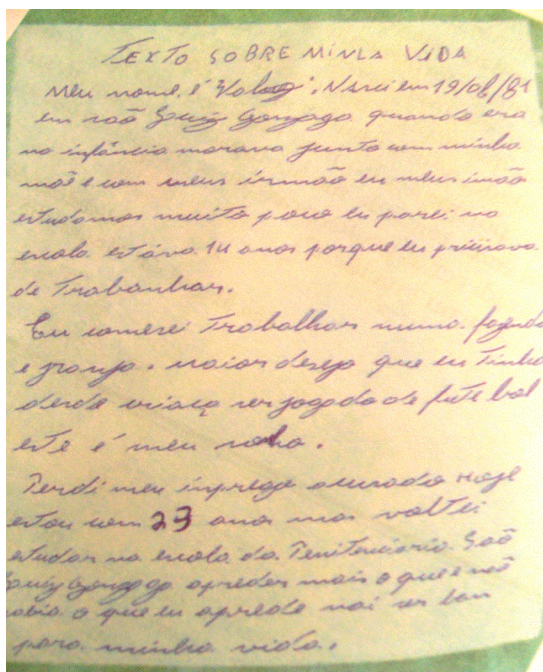 TEXTO SOBRE MINLA VIDA
Meu nome é . Nasci em 19/08/81
em saõ Luiz Gonzaga quando era
na infância morava junto com minha
maẽ e com meus irmão eu meus imão
estudamos muito pouco eu parei na
escola estava 14 anos porque eu
de Trabanhar.
Eu comesei Trabalhar numa fazenda
e granja. maior desejo que eu Tinha
desde criaça ser jogado de fute bol
este é meu .
Perdi meu imprego Hoje
estou com 23 ano mas voltei
estudar na escola da Penitenciaria Saõ
Luiz Gonzaga apreder mais o que e naõ
sabia o que eu aprede vai ser bom
para minha vida.